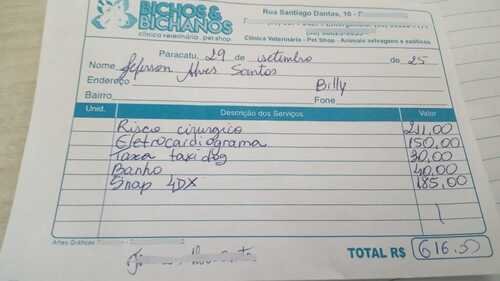 BICHOS &
BICHANOS
clínica veterinária . pet shop
Rua Santiago Dantas, 16 -
Clínica Veterinária - Pet Shop - Animais selvagens e exóticos
Paracatu, 29 de setembro de 25
Nome Jeferson Alves Santos
Endereço Billy
Bairro Fone
Unid. Descrição dos Serviços Valor
Risco cirurgico 211,00
Eletrocardiograma 150,00
Taxa taxi dog 30,00
Banho 40,00
Snap 4DX 185,00
Artes Gráficas
TOTAL R$ 616,00